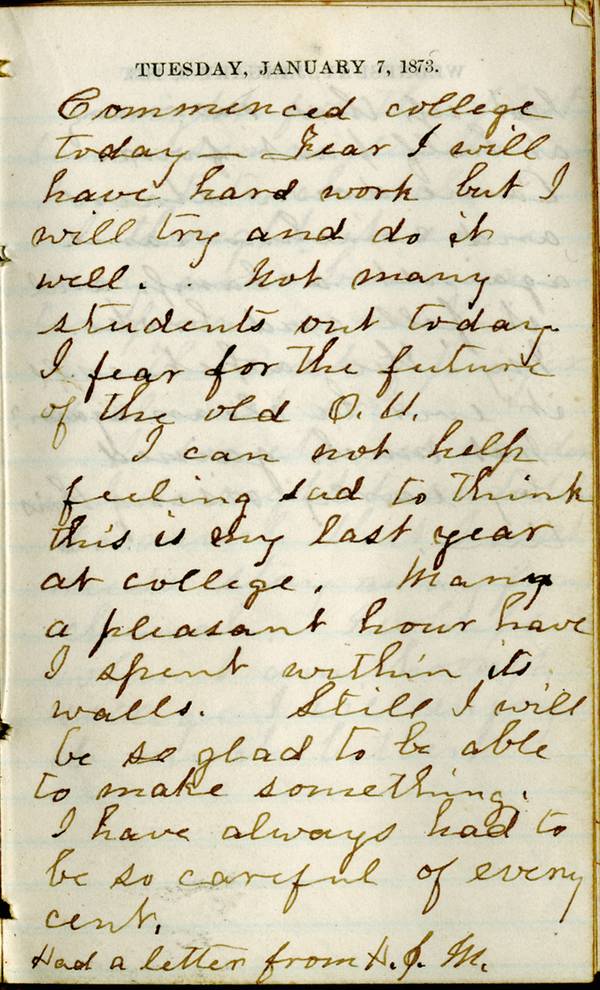 TUESDAY, JANUARY 7, 1873.
Commenced college
today — Fear I will
have hard work but I
will try and do it
well. . Not many
students out today.
I fear for the future
of the old O. U.
I can not help
feeling sad to think
this is my last year
at college. Many
a pleasant hour have
I spent within its
walls. Still I will
be so glad to be able
to make something.
I have always had to
be so careful of every
cent.
Had a letter from H. J. M.